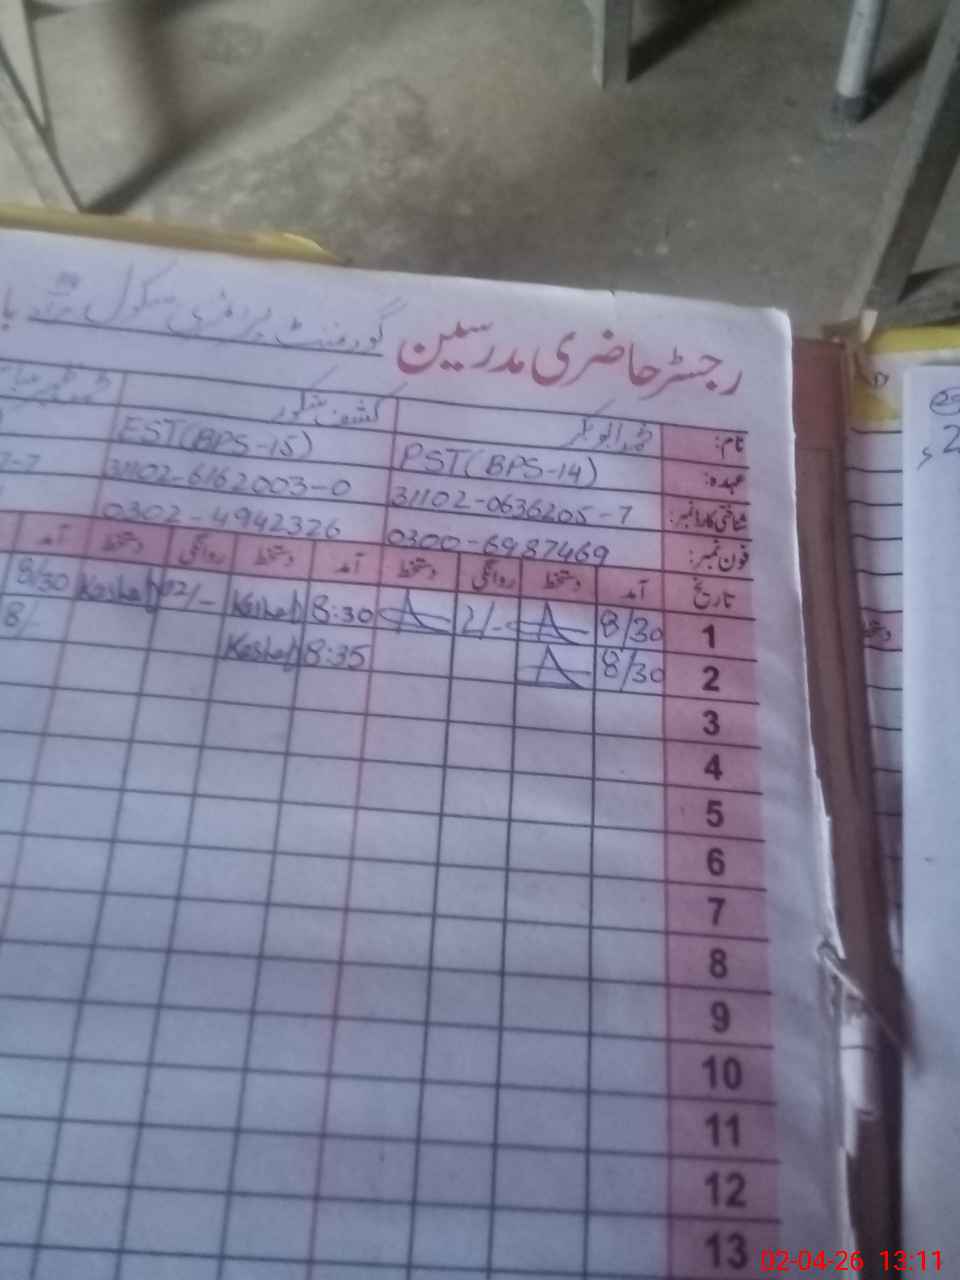 رجسٹر حاضری مدرسین گورنمنٹ پرائمری سکول
نام: محمد ابوبکر کشف
عہدہ: PST(BPS-14) EST(BPS-15)
شناختی کارڈ نمبر: 31102-0636205-7 31102-6162003-0
فون نمبر: 0300-6987469 0302-4942326
تاریخ آمد دستخط روانگی دستخط آمد دستخط روانگی دستخط آمد
1 8/30 2/- 8:30 Kashaf 02/- Kashaf 8/30
2 8/30 8:35 Kashaf 8/-
3
4
5
6
7
8
9
10
11
12
13
02-04-26 13:11